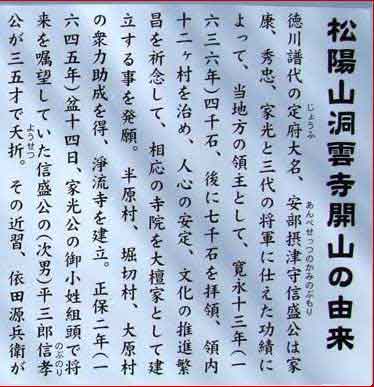 松陽山洞雲寺開山の由来
徳川譜代の定府大名、安部摂津守信盛公は家
じょうふ
あんべせっつのかみのぶもり
康、秀忠、家光と三代の将軍に仕えた功績に
よって、当地方の領主として、寛永十三年(一
六三六年)四千石、後に七千石を拝領、領内
十二ヶ村を治め、人心の安定、文化の推進繁
昌を祈念して、相応の寺院を大檀家として建
立する事を発願。半原村、堀切村、大原村
の衆力助成を得、浄流寺を建立。正保二年(一
六四五年)盆十四日、家光公の御小姓組頭で将
来を嘱望していた信盛公の(次男)平三郎信孝
のぶのり
公が三五才で夭折。その近習、依田源兵衛が
ようせつ